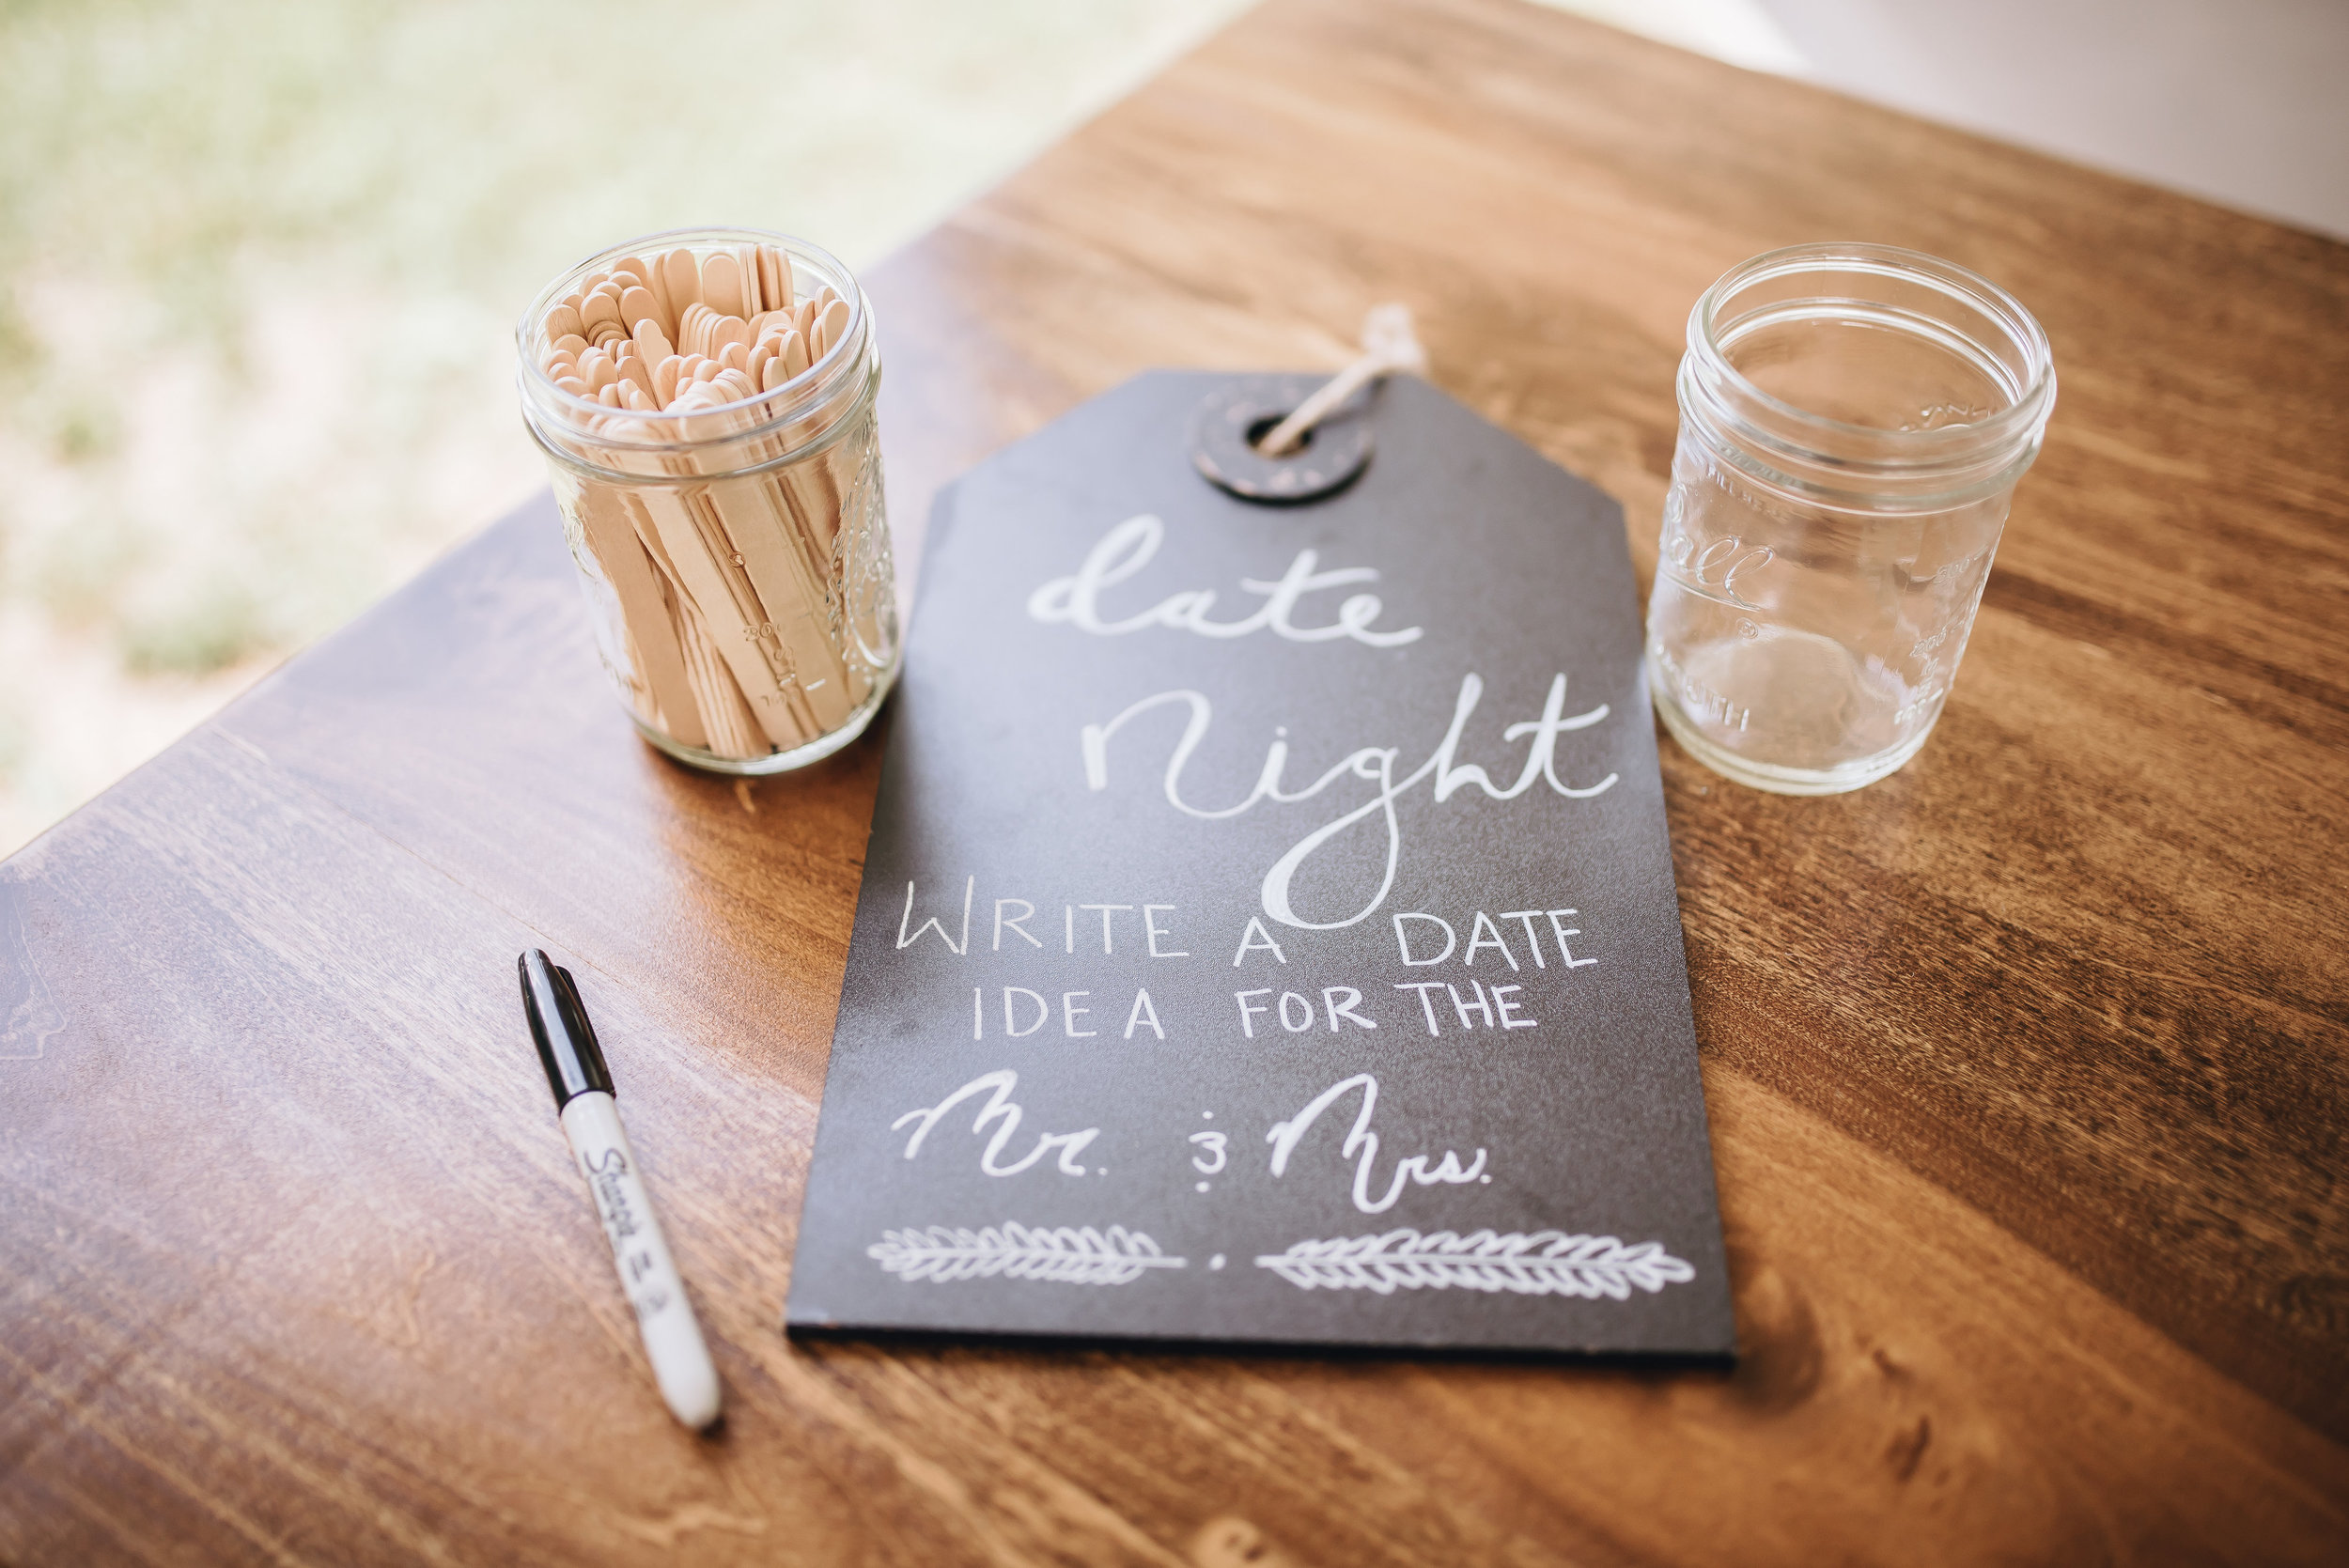 date
Night
WRITE A DATE
IDEA FOR THE
Mr. & Mrs.
Sharpie
Ball